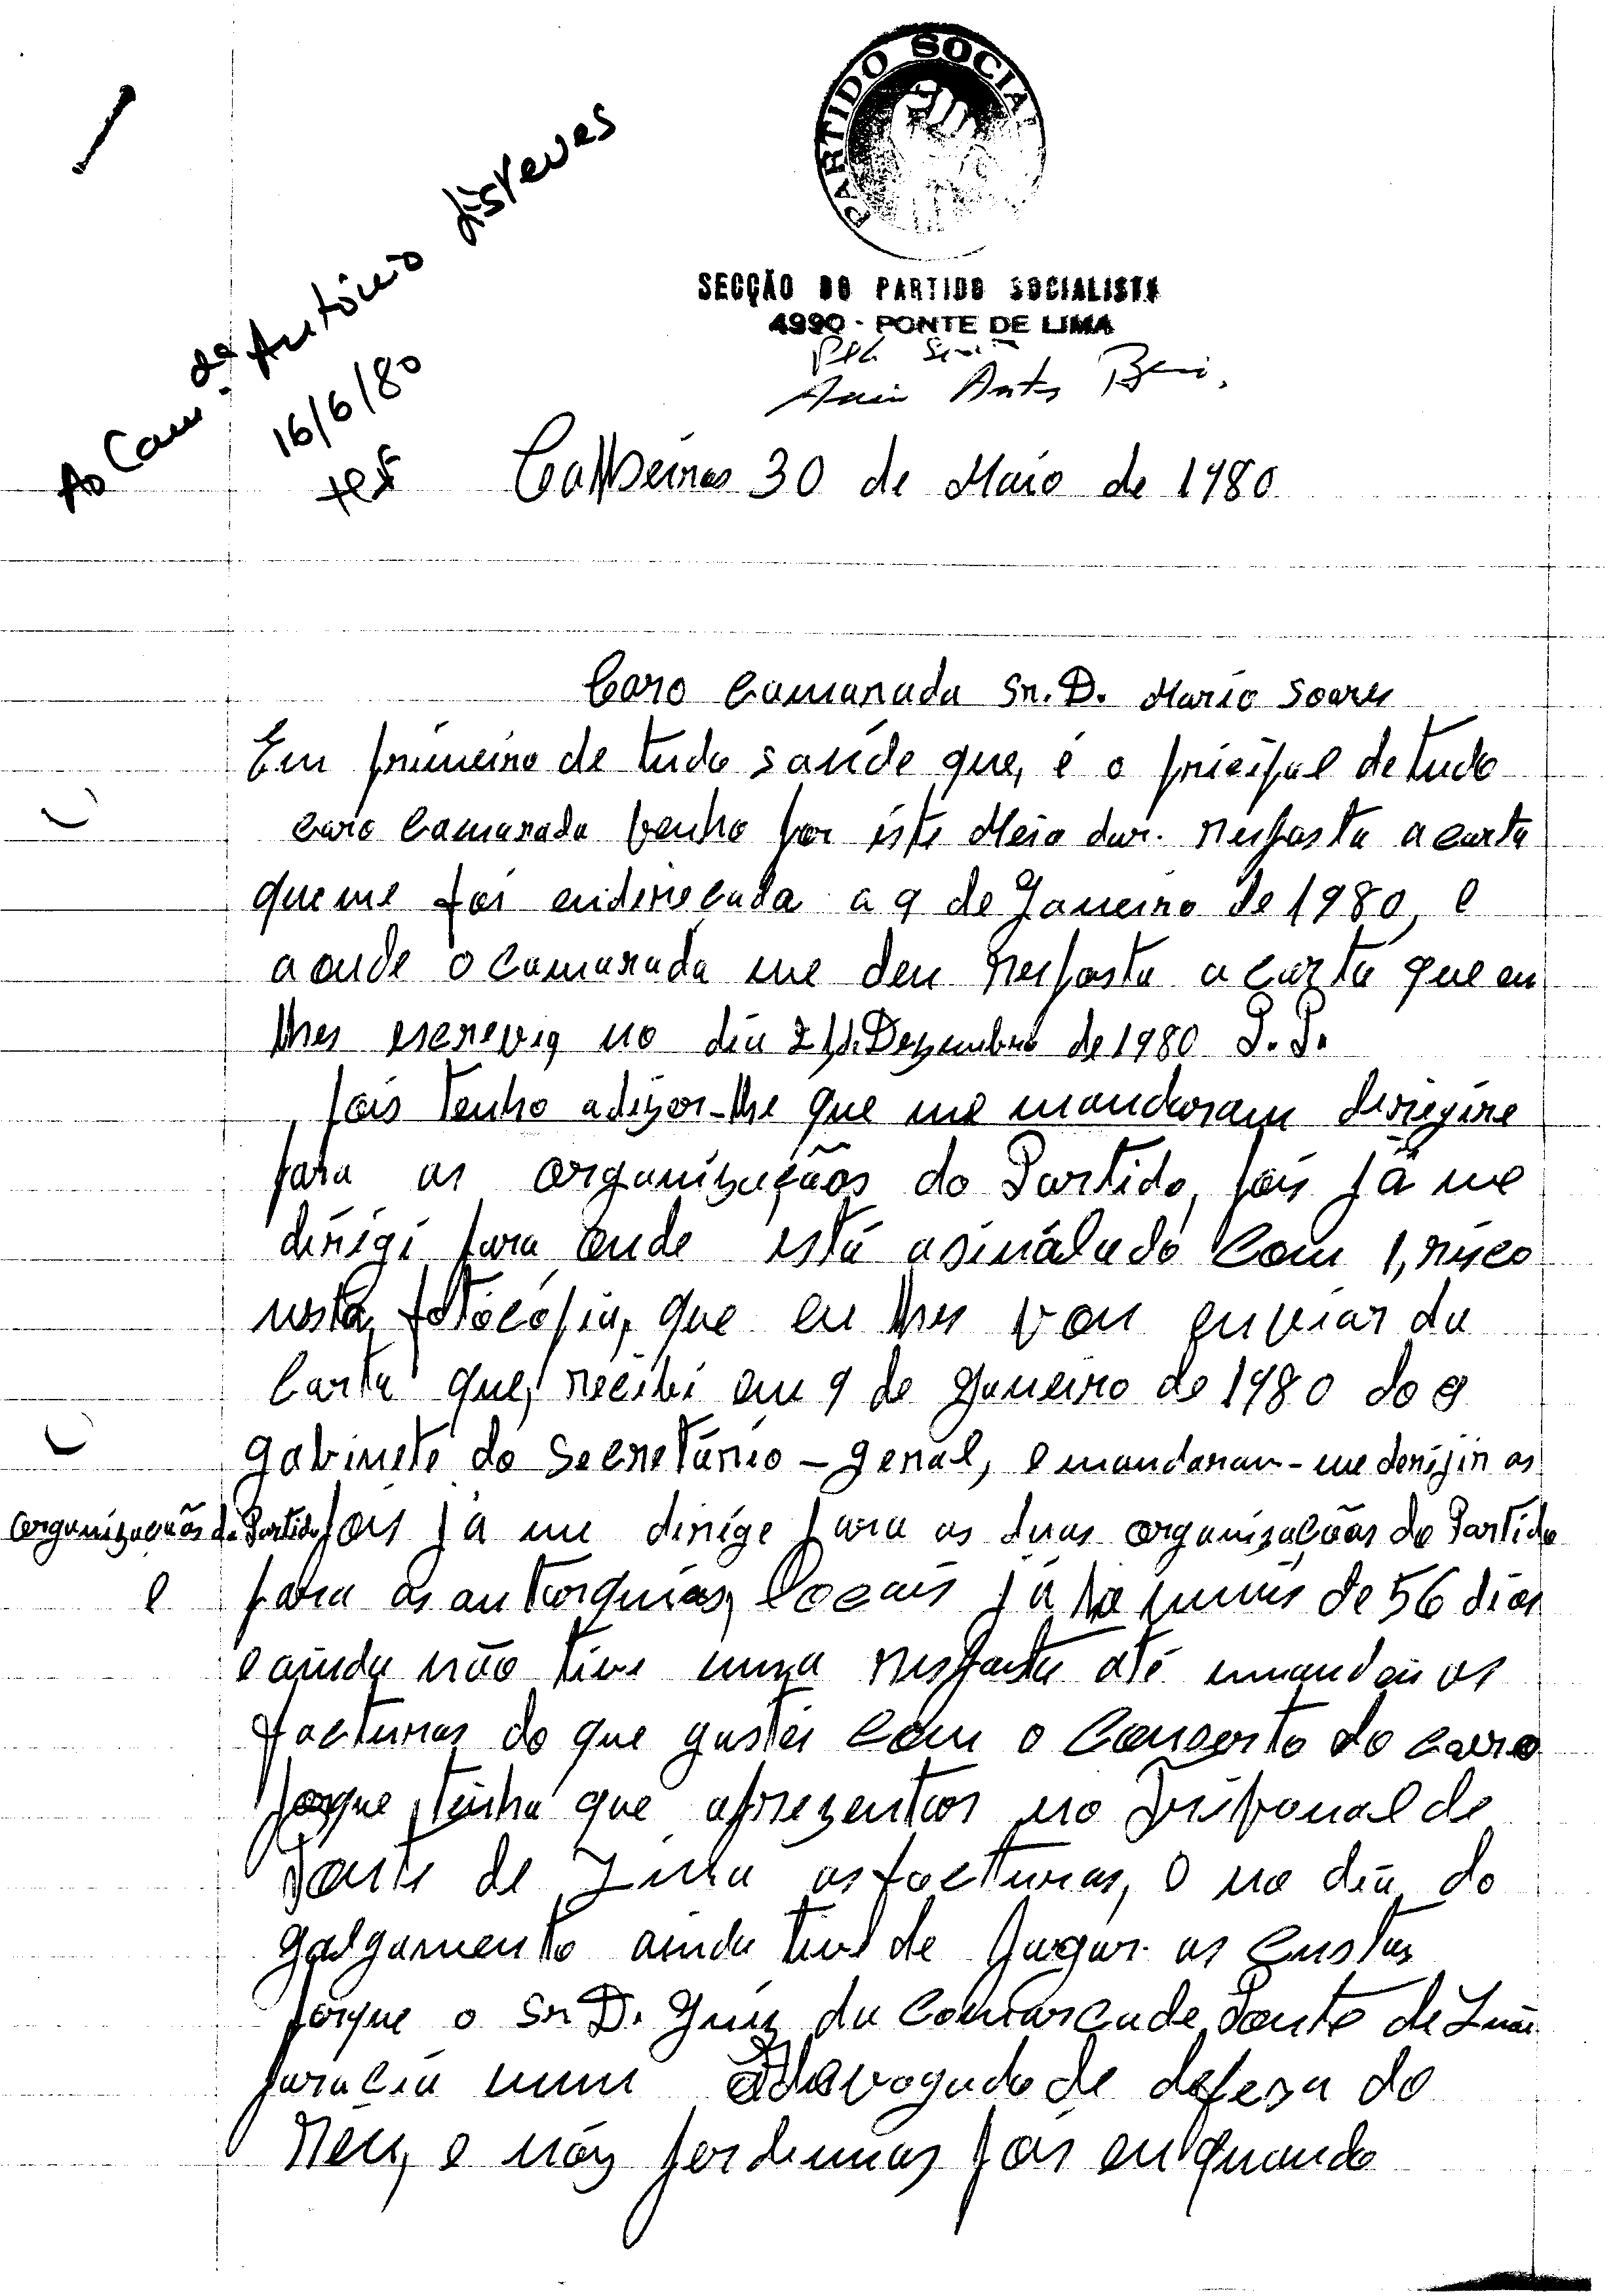 PARTIDO SOCIAL
SECÇÃO DO PARTIDO SOCIALISTA
4990 - PONTE DE LIMA
Ao Cam.da António Esteves
16/6/80
Calheiros 30 de Maio de 1980
Caro Camarada Sr. D. Mario Soares
Em primeiro de tudo saúde que, é o pricipal de tudo
caro Camarada venho por iste Meio dar resposta a carta
que me foi endereçada a 9 de Janeiro de 1980, e
aonde o camarada me deu resposta a carta que eu
lhes escrevig no dia Dezembro de 1980 P.P.
pois tenho adizer-lhe que me mandaram dirigire
para as organizaçãos do Partido, pois já me
dirigi para onde está asinálado com 1, risco
nesta, fotócópia, que eu lhes vou enviar da
Carta que, recibi em 9 de Janeiro de 1980 do
gabinete do Secretário-geral, e mandaram-me derijir as
organizaçãos do Partido pois já me dirige para as duas organizaçãos do Partido
e para as autarquias, locais já ha mais de 56 dias
e ainda não tive uma resposta até mandei as
facturas do que gastei com o Conserto do carro
porque tinha que aprezentar no Tribonal de
Ponte de Lima as facturas, e no dia do
galgamento ainda tive de pagar as custas
porque o Sr D. Juiz da Comarca de Ponte de Lima
paracia um Adevogado de defesa do
Réu, e nós perdemos pois enquando